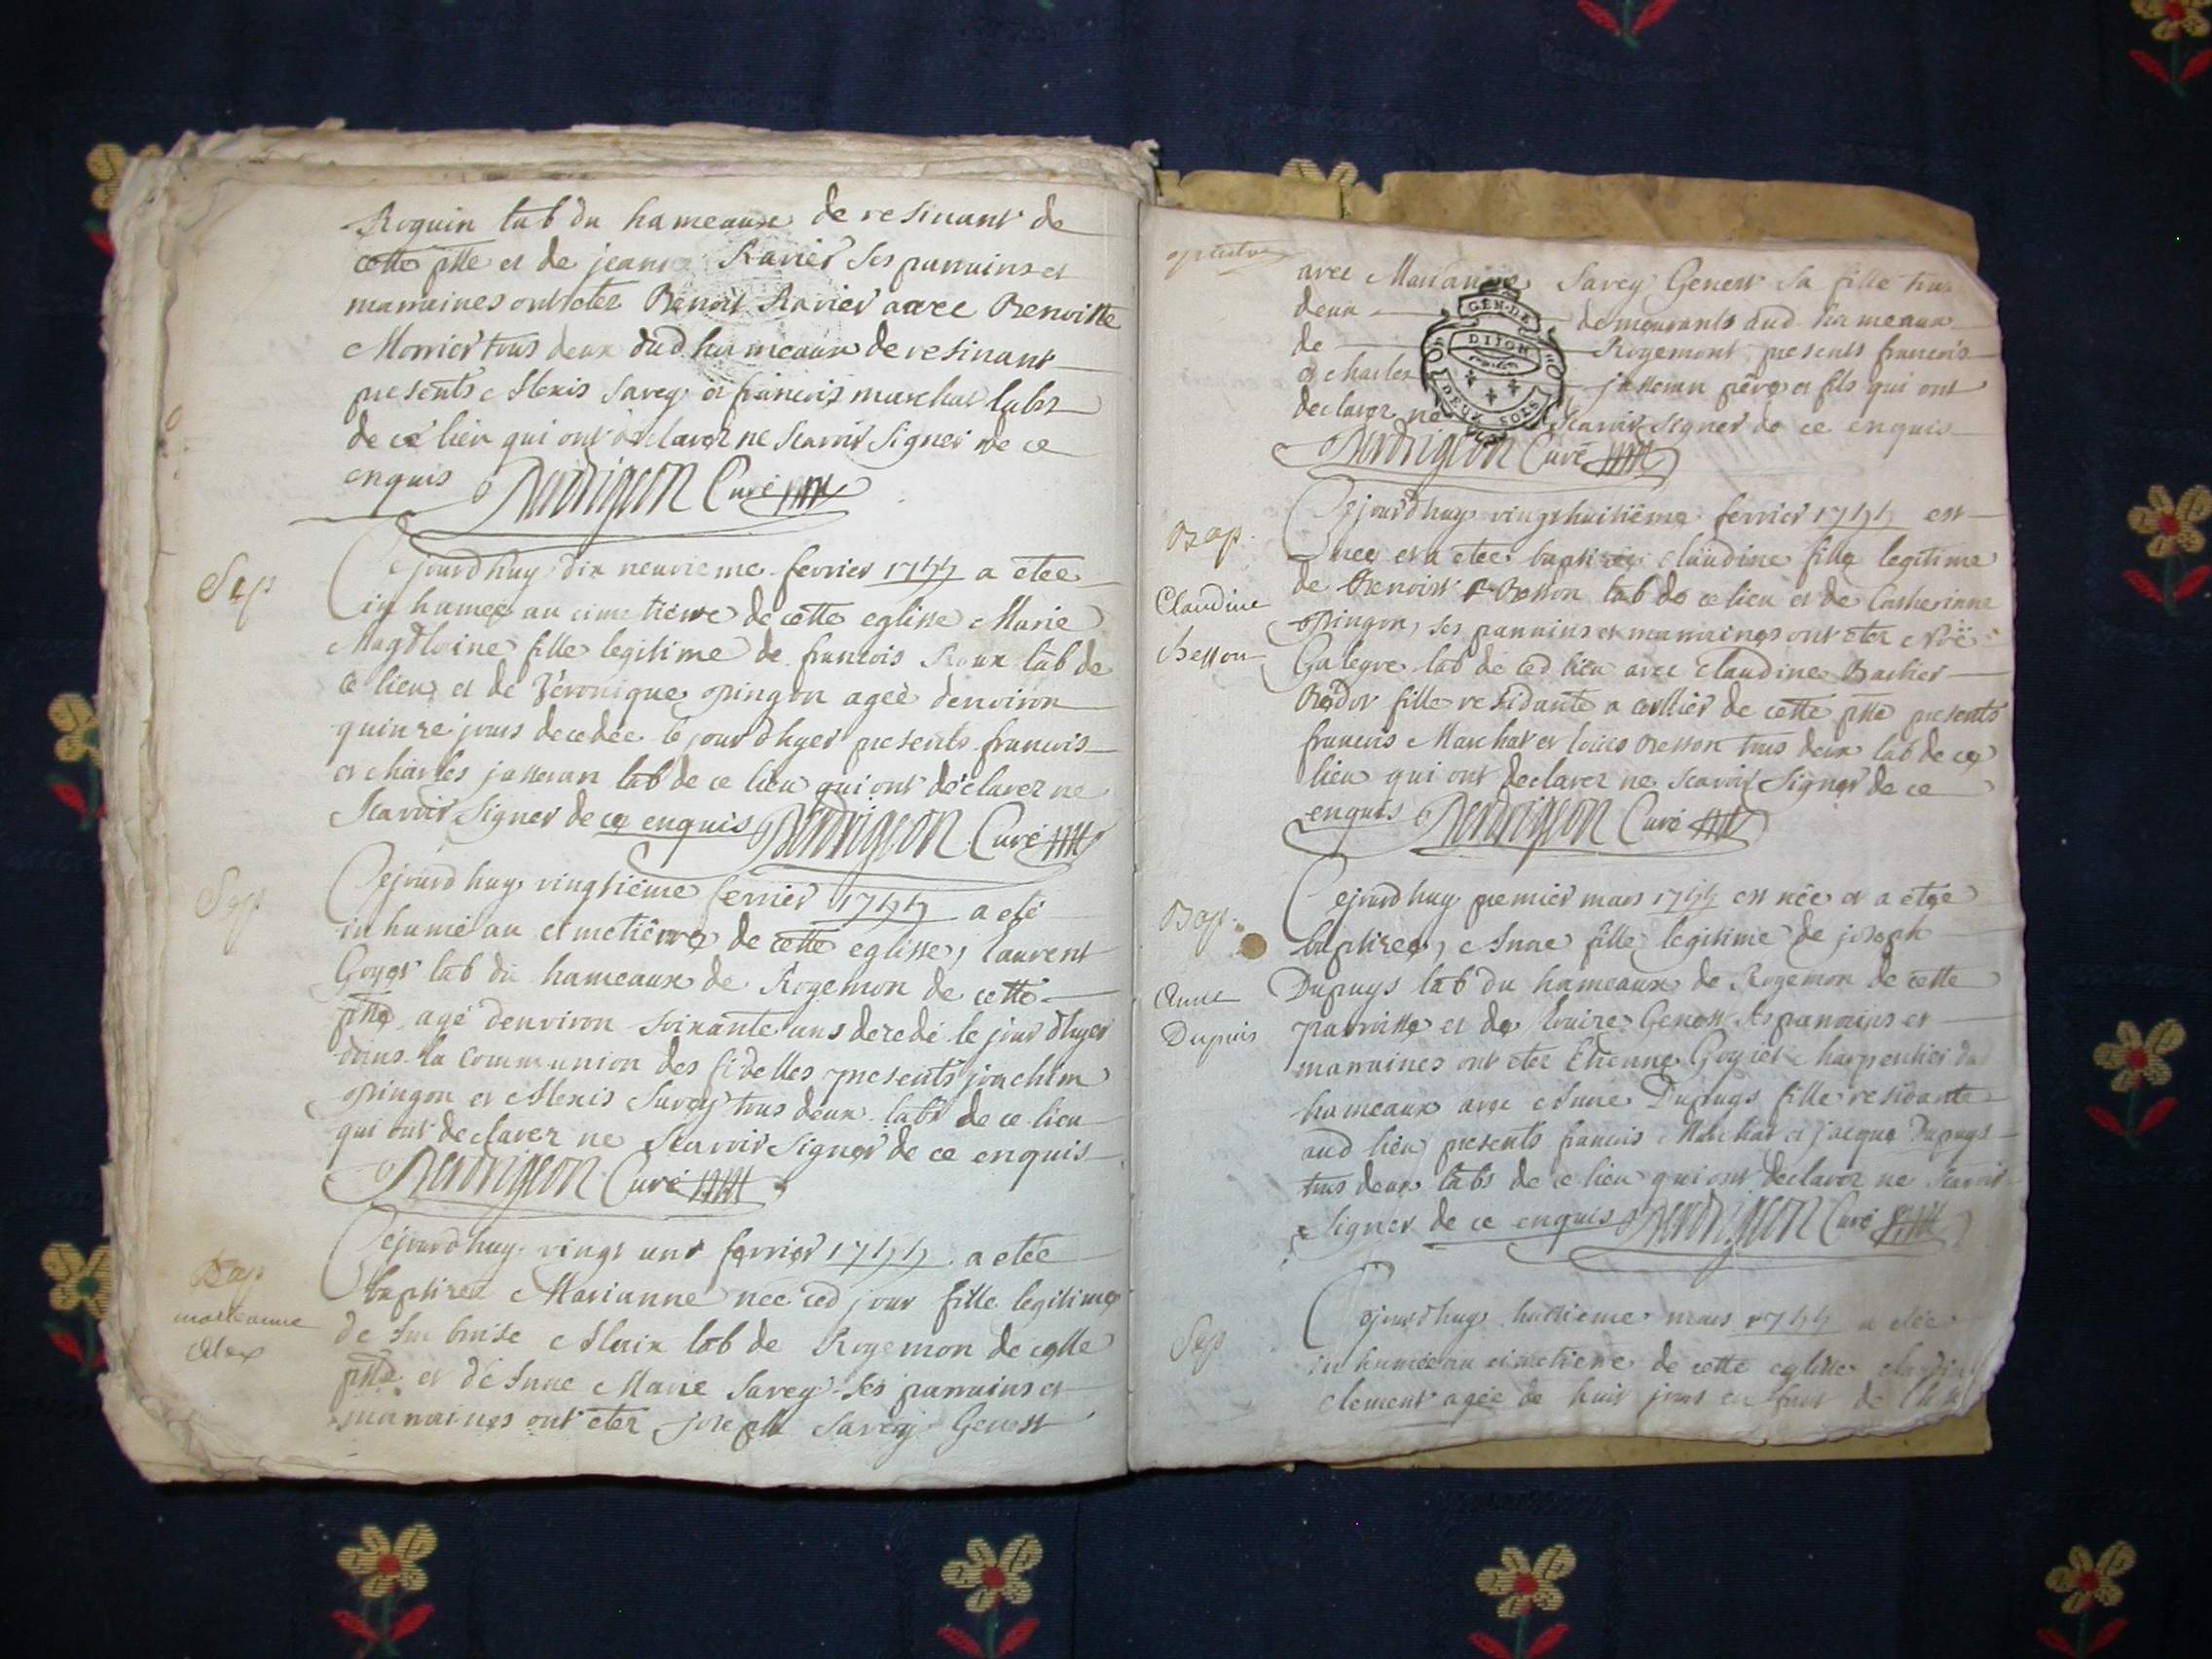 Roquin lab du hameaux de resinant de
cette psse et de jeanne Ravier ses parrains et
marraines ont eter Benoit Ravier avec Benoitte
Morrier tous deux dud hameaux de resinant
presents Alexis Savey et francois marchat labrs
de ce lieu qui ont declarer ne scavoir signer de ce
enquis Curé
Sep
Cejourdhuy dix neuvieme fevrier 1744 a etee
inhumee au cimetierre de cette eglisse Marie
Magdlaine fille legitime de francois Roux lab de
ce lieu et de Véronique pingon agée denviron
quinze jours decedée le jour dhyer presents francois
et charles jasseran lab de ce lieu qui ont déclarer ne
scavoir signer de ce enquis Curé
Sep
Cejourdhuy vingtiéme fevrier 1744 a eté
inhumé au cimetiérre de cette eglisse, laurent
Goyet lab du hameaux de Rogemon de cette
psse agé denviron soixante ans decedé le jour dhyer
dans la communion des fidelles presents joachim
pingon et Alexis Savey tous deux labrs de ce lieu
qui ont declarer ne scavoir signer de ce enquis
Curé
Bap
marianne
Alex
Cejourdhuy vingt une fevrier 1744 a etée
baptizee Marianne née ced jour fille legitime
de Ambroise Alaix lab de Rogemon de cette
psse et de Anne Marie Savey ses parrains et
marraines ont eter joseph Savey Genest
avec Marianne Savey Genest sa fille tous
deux demeurants dud hameaux
de Rogemont presents francois
et charles jasseran pére et fils qui ont
declarer ne scavoir signer de ce enquis
Curé
GEN·DE
DIJON
DEUX SOLS
Bap.
Claudine
besson
Cejourdhuy vingt huitiéme fevrier 1744 est
nee et a etee baptizée Claudine fille legitime
de Benoist Besson lab de ce lieu et de Catherinne
pingon, ses parrains et marraines ont eter Noë
Galeyre lab de ced lieu avec Claudine Barlier
fille residante a de cette psse presents
francois Marchat et louis Besson tous deux lab de ce
lieu qui ont declarer ne scavoir signer de ce
enquis Curé
Bap.
Anne
Dupuis
Cejourdhuy premier mars 1744 est née et a etée
baptizee, Anne fille legitime de joseph
Dupuys lab du hameaux de Rogemon de cette
parroisse et de louize Genest ses parrains et
marraines ont eter Etienne Goyiet charpentier du
hameaux avec Anne Dupuys fille residante
aud lieu presents francois Marchat et jacque Dupuys
tous deux labs de ce lieu qui ont declarer ne scavoir
signer de ce enquis Curé
Sep
Cejourdhuy huitieme mars 1744 a etée
inhumée au cimetierre de cette eglisse
clement agée de huit jours de